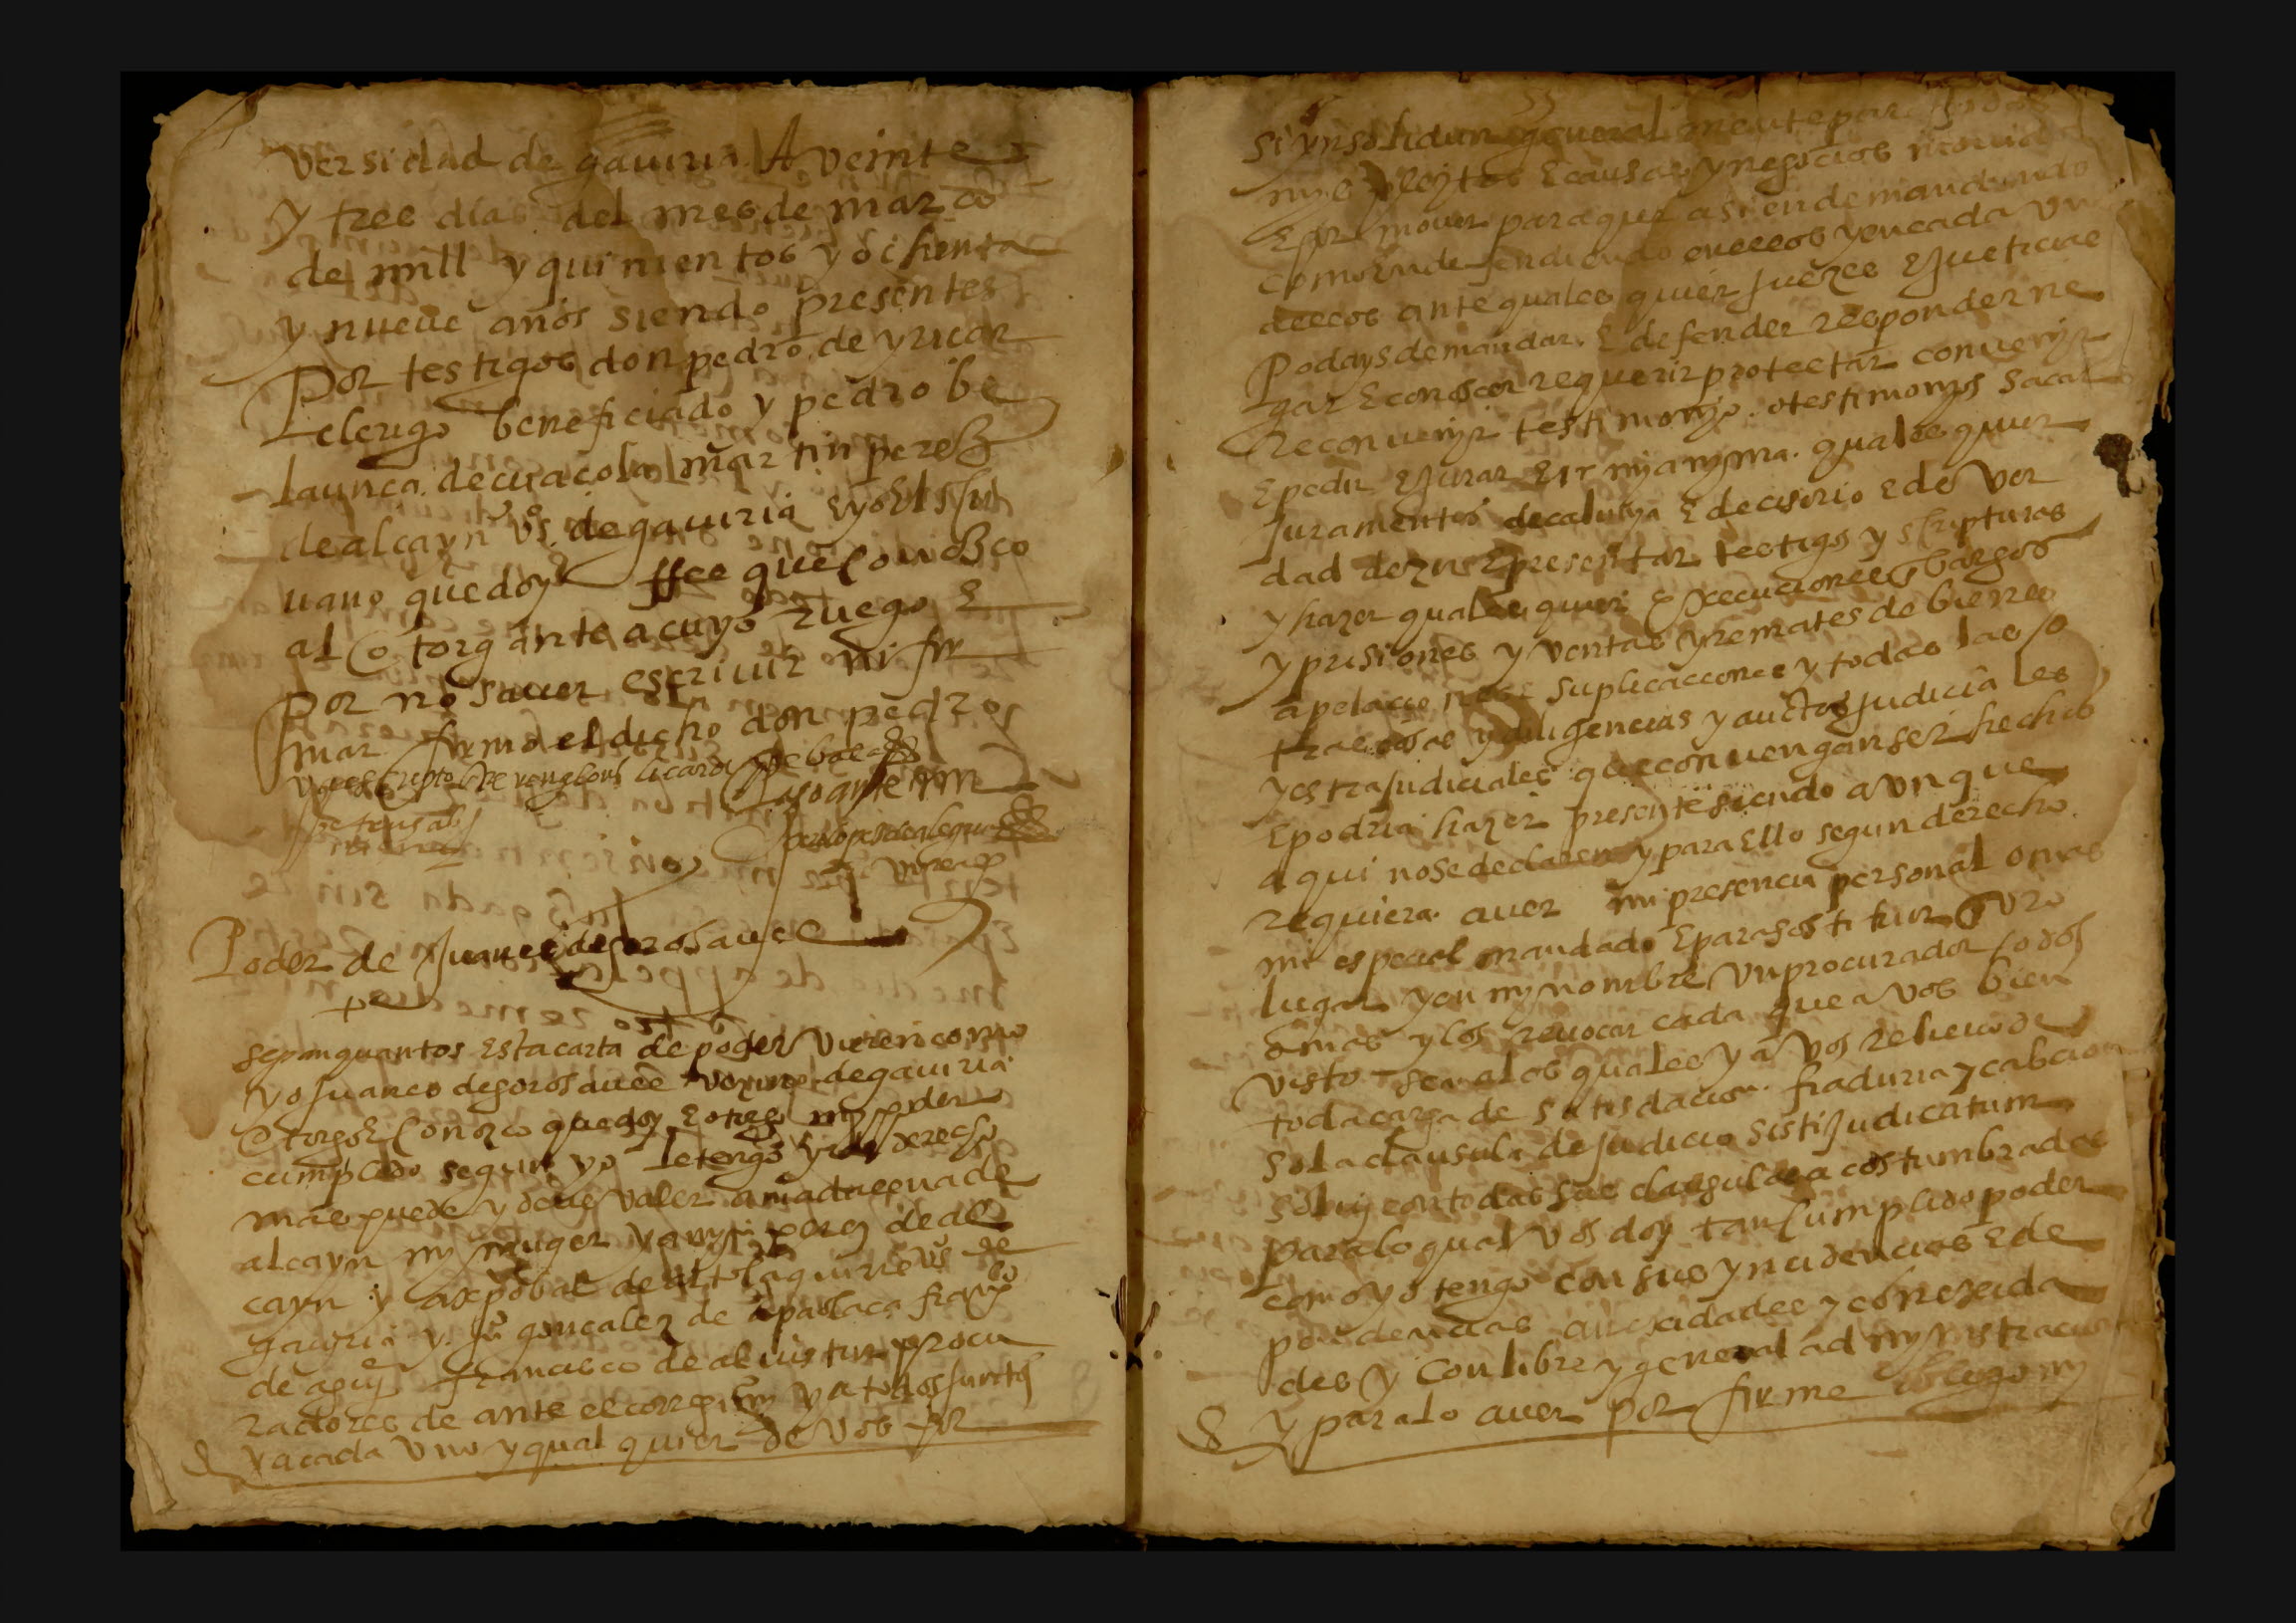 versidad de gauiria A veinte
y tres dias del mes de março
de mill y quinientos y ochenta
y nueue años siendo presentes
Por testigos don pedro de yricar
clerigo beneficiado y pedro be
launça decuacola martin perez
de alcayn vº de gauiria E yo El scri
uano que doy ffee que Conozco
al otorgante a cuyo Ruego E
por no sauer escriuir ni fir
mar firmo el dicho don pedro
Paso ante mi
Poder de Juanes de gorosauee
sepan quantos Esta carta de poder vieren como
yo Juanes de gorosauee vezino de gauiria
otorgo E Conozco que doy E otorgo my poder
cumplido segun yo le tengo y de derecho
mas puede y deue valer a maria perez de
alcayn my muger y a myn perez de al
cayn y a xpobal de altolaguirre vº de
gauiria y Juº gonçalez de apaolaça franco
de aguyº francisco de aluistur procu
radores de ante el corregimyº y a todos juntos
y a cada vno y qual quier de vos por
si ynsolidun generalmente para todos
mys pleytos E causas y negocios mouidos
E por mouer para que asi en demandando
como en defendiendo en ellos y en cada vno
dellos ante quales quier juezes E justicias
Podays demandar E defender responder ne
gar E conoscer requerir protestar conuenyr
Reconuenyr testimonyo o testimonyos sacar
E pedir E jurar En my anyma quales quier
juramentos de calunya E decisorio E de ver
dad dezir E presentar testigos y scripturas
y hazer quales quier Execuciones enbargos
y prisiones y ventas y remates de bienes
apelaciones suplicaciones y todas las o
tras cosas y diligencias y auctos judiciales
y estrajudiciales que conuengan ser fechos
E podria hazer presente siendo avnque
aqui no se declaren y para Ello segun derecho
requiera auer mi presencia personal o mas
mi especial mandado E para sostituir En vro
lugar y en my nombre vn procurador o dos
o mas y los reuocar cada que a vos bien
visto sea a los quales y a vos relieuo de
toda carga de satisdacion fiaduria y cabcion
so la clausula de judicio sisti judicatum
solui con todas sus clausulas acostumbradas
para lo qual vos doy tan cumplido poder
como yo tengo con sus yncidencias E de
pendencias anexidades y conexida
des y con libre y general admynistracion
y para lo auer por firme obligo my